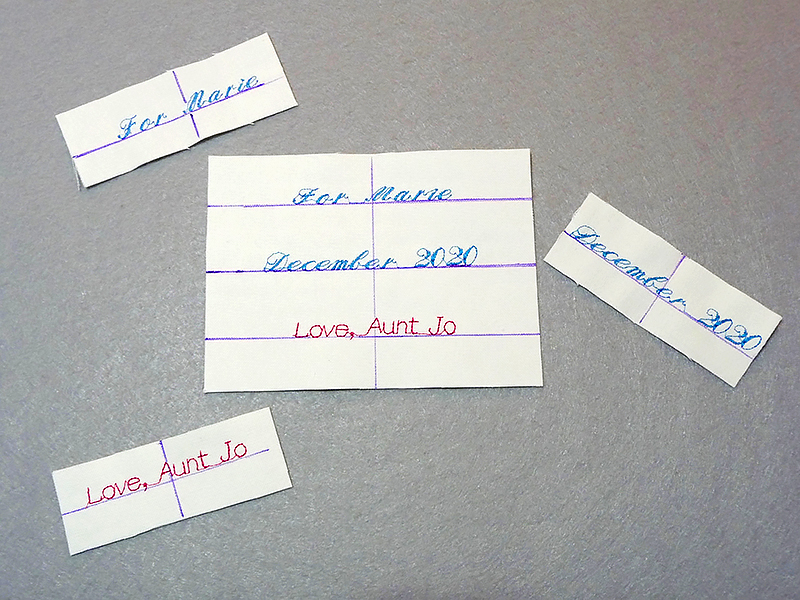 For Marie
For Marie
December 2020
Love, Aunt Jo
December 2020
Love, Aunt Jo